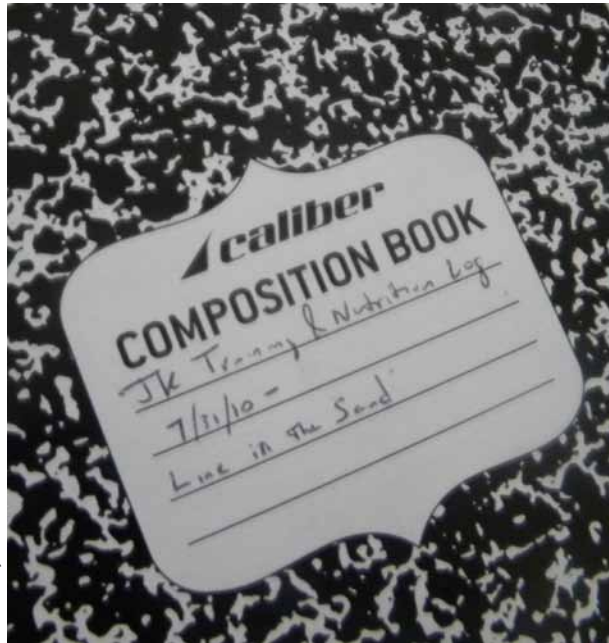 caliber
COMPOSITION BOOK
JK Training & Nutrition Log
7/31/10 -
Line in the Sand